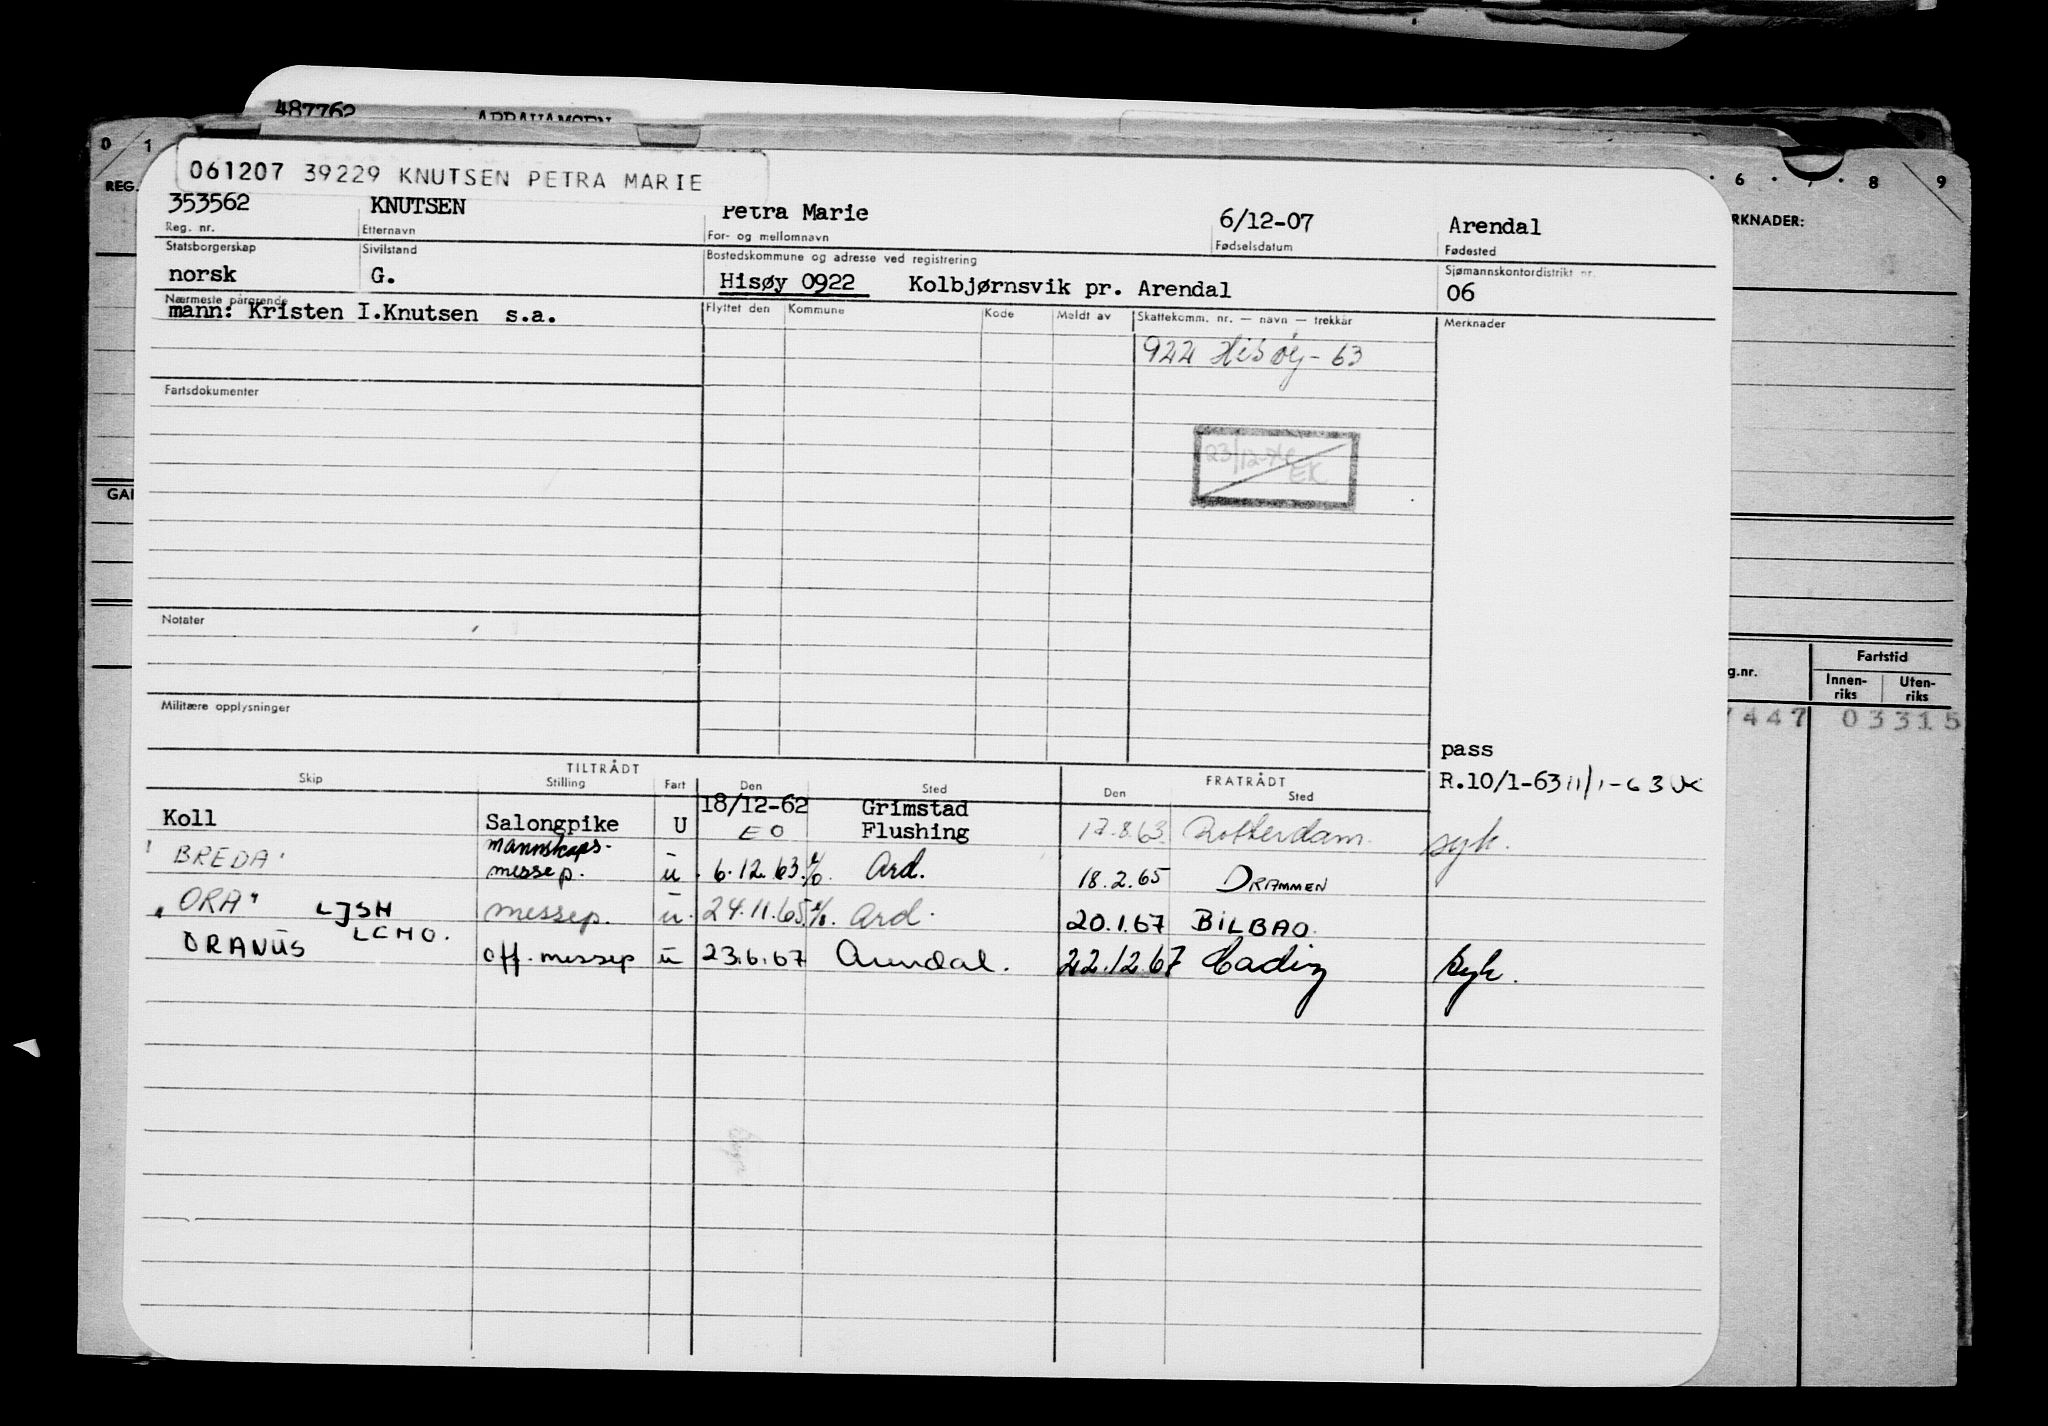 487762 ABRAHAMSEN
0 1 6 7 8 9
REG. RKNADER:
061207 39229 KNUTSEN PETRA MARIE
353562 KNUTSEN Petra Marie 6/12-07 Arendal
Reg. nr. Etternavn For- og mellomnavn Fødselsdatum Fødested
Statsborgerskap Sivilstand Bostedskommune og adresse ved registrering Sjømannskontordistrikt nr.
norsk G. Hisøy 0922 Kolbjørnsvik pr. Arendal 06
Nærmeste pårørende Flyttet den Kommune Kode Meldt av Skattekomm. nr. — navn — trekkår Merknader
mann: Kristen I.Knutsen s.a.
922 Hisøy - 63
Fartsdokumenter
23/12-74 EK
GAI
Notater
Fartstid
g.nr. Innen-riks Uten-riks
Militære opplysninger
7447 03315
pass
R.10/1-63 11/1-63
TILTRÅDT FRATRÅDT
Skip Stilling Fart Den Sted Den Sted
18/12-62 Grimstad
Koll Salongpike U EO Flushing 17.8.63 Rotterdam syk.
"BREDA" mannskaps-
messep. u 6.12.63 Ard. 18.2.65 DRAMMEN
"ORA" LJSH messep. u. 24.11.65 Ard. 20.1.67 BILBAO
ORANUS LCMO. off. messep u 23.6.67 Arendal. 22.12.67 Cadiz syk.